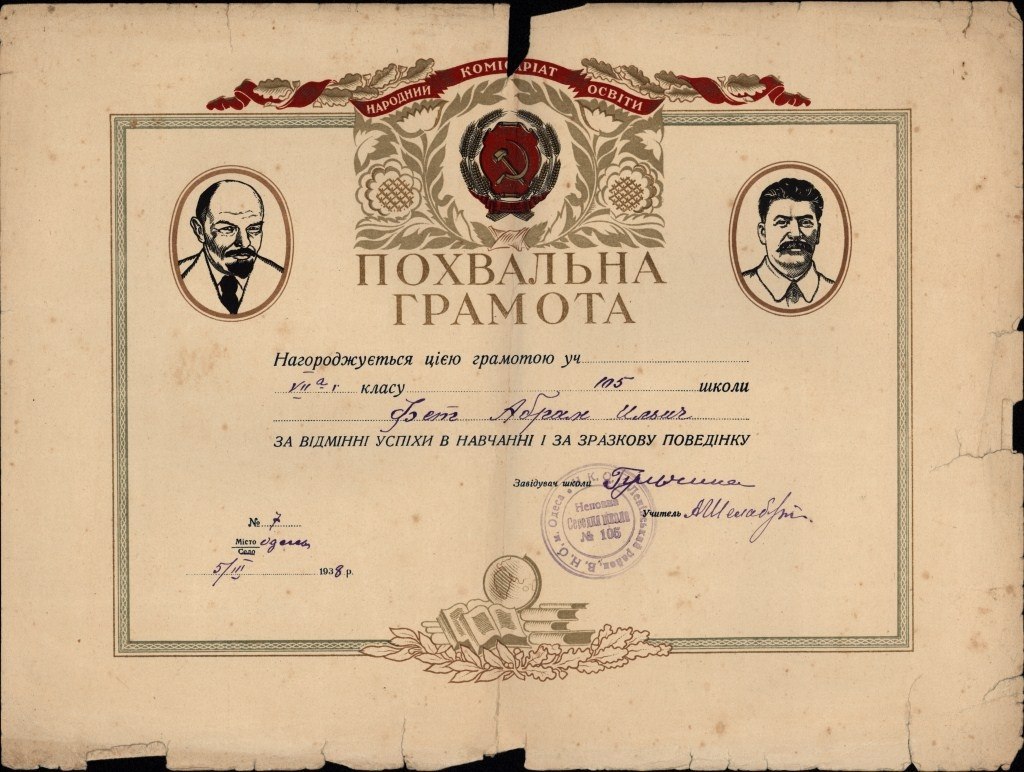 НАРОДНИЙ КОМІСАРІАТ ОСВІТИ
ПОХВАЛЬНА
ГРАМОТА
Нагороджується цією грамотою уч
VII а г класу 105 школи
Фет Абрам Ильич
ЗА ВІДМІННІ УСПІХИ В НАВЧАННІ І ЗА ЗРАЗКОВУ ПОВЕДІНКУ
Завідувач школи
Учитель
Неповна
Середня школа
№ 105
№ 7
Місто Одеса
Село
5/III 1938 р.